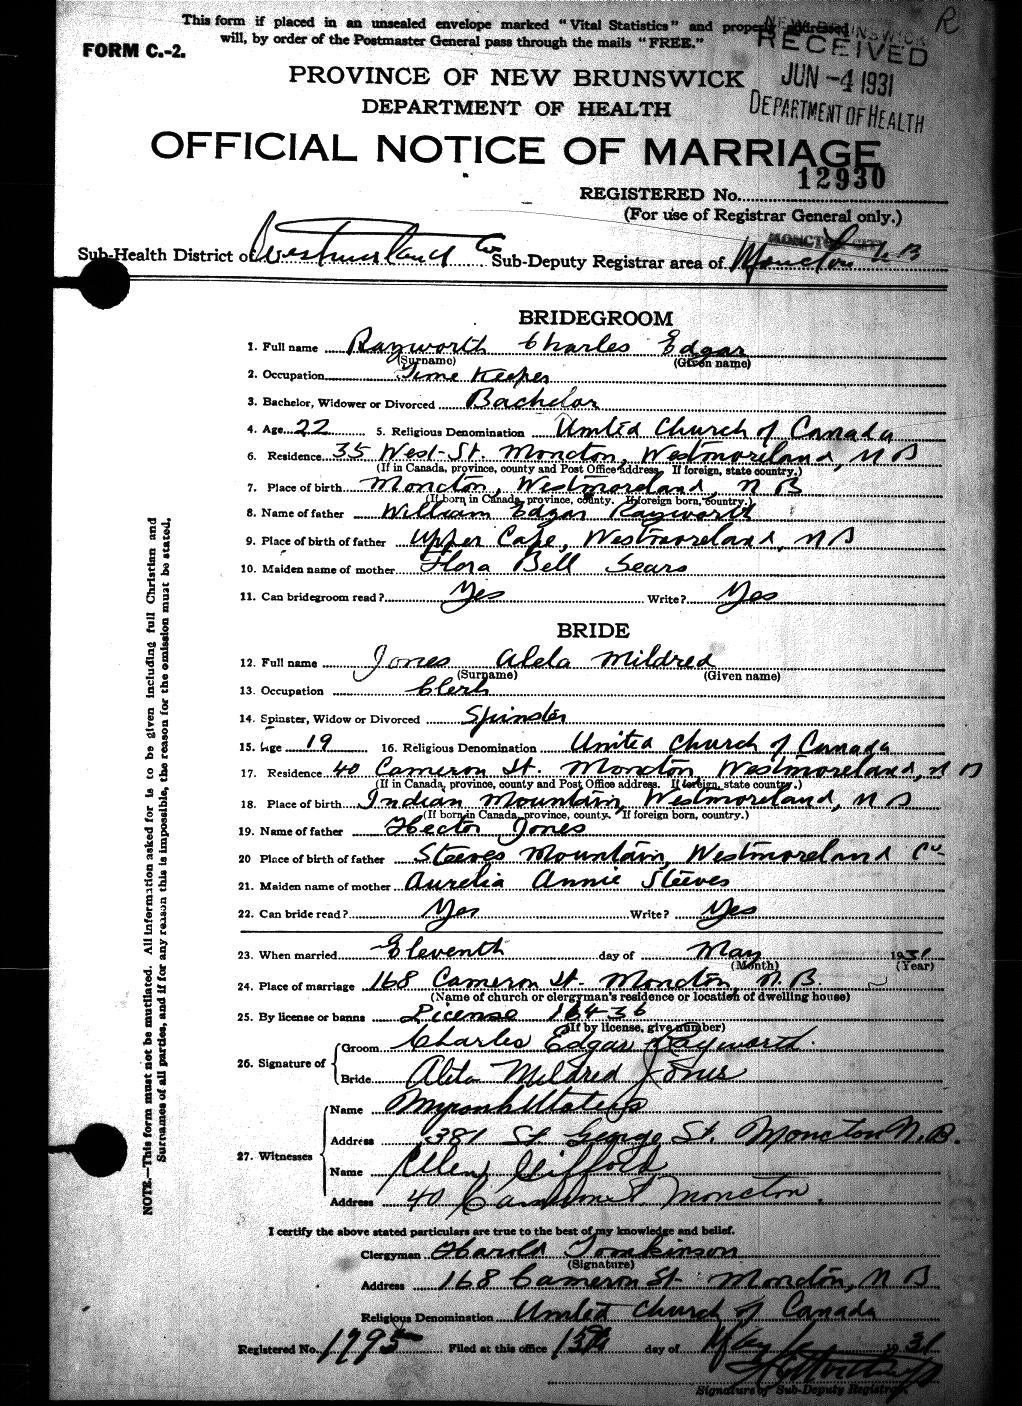 This form if placed in an unsealed envelope marked "Vital Statistics" and properly addressed
FORM C.-2. will, by order of the Postmaster General pass through the mails "FREE."
R
NEW BRUNSWICK
RECEIVED
JUN -4 1931
DEPARTMENT OF HEALTH
PROVINCE OF NEW BRUNSWICK
DEPARTMENT OF HEALTH
OFFICIAL NOTICE OF MARRIAGE
REGISTERED No. 12930
(For use of Registrar General only.)
MONCTON CITY
Sub-Health District of Westmorland Co Sub-Deputy Registrar area of Moncton N B
BRIDEGROOM
1. Full name Rayworth Charles Edgar
(Surname) (Given name)
2. Occupation Time Keeper
3. Bachelor, Widower or Divorced Bachelor
4. Age 22 5. Religious Denomination United Church of Canada
6. Residence 35 West St. Moncton, Westmoreland, N B
(If in Canada, province, county and Post Office address. If foreign, state country.)
7. Place of birth Moncton, Westmoreland, N B
(If born in Canada, province, county. If foreign born, country.)
8. Name of father William Edgar Rayworth
9. Place of birth of father Upper Cape, Westmoreland, N B
10. Maiden name of mother Flora Bell Sears
11. Can bridegroom read? Yes Write? Yes
BRIDE
12. Full name Jones Aleta Mildred
(Surname) (Given name)
13. Occupation Clerk
14. Spinster, Widow or Divorced Spinster
15. Age 19 16. Religious Denomination United Church of Canada
17. Residence 40 Cameron St. Moncton, Westmoreland, N B
(If in Canada, province, county and Post Office address. If foreign, state country.)
18. Place of birth Indian Mountain, Westmoreland, N B
(If born in Canada, province, county. If foreign born, country.)
19. Name of father Hector Jones
20 Place of birth of father Steeves Mountain, Westmoreland Co-
21. Maiden name of mother Aurelia Annie Steeves
22. Can bride read? Yes Write? Yes
23. When married Eleventh day of May 1931
(Month) (Year)
24. Place of marriage 168 Cameron St. Moncton, N. B.
(Name of church or clergyman's residence or location of dwelling house)
25. By license or banns License 16436
(If by license, give number)
26. Signature of Groom Charles Edgar Rayworth.
Bride Aleta Mildred Jones
27. Witnesses
Name Waters
Address 381 St. George St. Moncton N. B.
Name Ellen Gifford
Address 40 Cameron St Moncton.
I certify the above stated particulars are true to the best of my knowledge and belief.
Clergyman Harold Tomkinson
(Signature)
Address 168 Cameron St. Moncton, N B
Religious Denomination United Church of Canada
Registered No. 1795 Filed at this office 13th day of May 1931
Signature of Sub-Deputy Registrar.
NOTE.—This form must not be mutilated. All information asked for is to be given including full Christian and
Surnames of all parties, and if for any reason this is impossible, the reason for the emission must be stated.